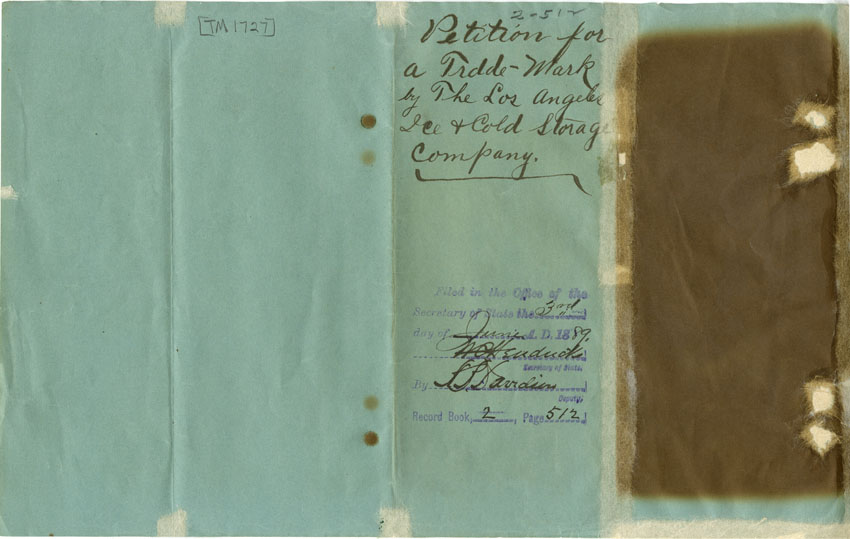 [TM 1727]
2-512
Petition for
a Trade-Mark
by The Los Angeles
Ice & Cold Storage
Company.
Filed in the Office of the
Secretary of State the 3rd
day of June A. D. 1889.
W C Hendricks
Secretary of State.
By L. B. Davidson
Deputy.
Record Book, 2, Page 512